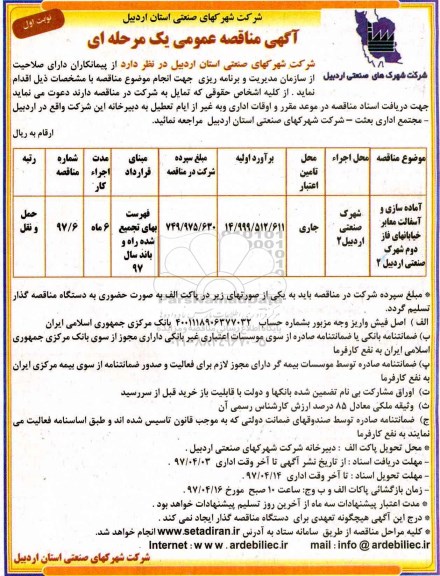 شرکت شهرکهای صنعتی استان اردبیل
نوبت اول
آگهی مناقصه عمومی یک مرحله ای
شرکت شهرک های صنعتی اردبیل
شرکت شهرکهای صنعتی استان اردبیل در نظر دارد از پیمانکاران دارای صلاحیت
از سازمان مدیریت و برنامه ریزی جهت انجام موضوع مناقصه با مشخصات ذیل اقدام
نماید . از کلیه اشخاص حقوقی که تمایل به شرکت در مناقصه دارند دعوت می نماید
جهت دریافت اسناد مناقصه در موعد مقرر و اوقات اداری وبه غیر از ایام تعطیل به دبیرخانه این شرکت واقع در اردبیل
- مجتمع اداری بعثت – شرکت شهرکهای صنعتی استان اردبیل مراجعه نمائید.
ارقام به ریال
موضوع مناقصه | محل اجراء | محل تامین اعتبار | برآورد اولیه | مبلغ سپرده شرکت در مناقصه | مبنای قرارداد | مدت اجراء کار | شماره مناقصه | رتبه
آماده سازی و آسفالت معابر خیابانهای فاز دوم شهرک صنعتی اردبیل ۲ | شهرک صنعتی اردبیل۲ | جاری | ۱۴/۹۹۹/۵۱۲/۶۱۱ | ۷۴۹/۹۷۵/۶۳۰ | فهرست بهای تجمیع شده راه و باند سال ۹۷ | ۶ ماه | ۹۷/۶ | حمل و نقل
* مبلغ سپرده شرکت در مناقصه باید به یکی از صورتهای زیر در پاکت الف به صورت حضوری به دستگاه مناقصه گذار
تسلیم گردد.
الف ) اصل فیش واریز وجه مزبور بشماره حساب ۴۰۰۱۱۱۸۹۰۶۳۷۷۰۳۲ بانک مرکزی جمهوری اسلامی ایران
ب) ضمانتنامه بانکی یا ضمانتنامه صادره از سوی موسسات اعتباری غیر بانکی دارای مجوز از سوی بانک مرکزی جمهوری
اسلامی ایران به نفع کارفرما
پ) ضمانتنامه صادره توسط موسسات بیمه گر دارای مجوز لازم برای فعالیت و صدور ضمانتنامه از سوی بیمه مرکزی ایران
به نفع کارفرما
ت) اوراق مشارکت بی نام تضمین شده بانکها و دولت با قابلیت باز خرید قبل از سررسید
ث) وثیقه ملکی معادل ۸۵ درصد ارزش کارشناس رسمی آن
ج) ضمانتنامه صادره توسط صندوقهای ضمانت دولتی که به موجب قانون تاسیس شده اند و طبق اساسنامه فعالیت می
نمایند به نفع کارفرما
* محل تحویل پاکت الف : دبیرخانه شرکت شهرکهای صنعتی اردبیل .
- مهلت دریافت اسناد : از تاریخ نشر آگهی تا آخر وقت اداری ۹۷/۰۴/۰۳ .
- مهلت تحویل اسناد : تا آخر وقت اداری ۹۷/۰۴/۱۴ .
- زمان بازگشائی پاکات الف و ب وج: ساعت ۱۰ صبح مورخ ۹۷/۰۴/۱۶ .
* مدت اعتبار پیشنهادات سه ماه از آخرین روز تسلیم پیشنهادات خواهد بود .
* درج این آگهی هیچگونه تعهدی برای دستگاه مناقصه گذار ایجاد نمی کند .
* کلیه مراحل مناقصه از طریق سامانه ستاد به آدرس www.setadiran.ir انجام خواهد شد.
Internet : w w w . ardebiliec.ir mail : info @ ardebiliec.ir
شرکت شهرکهای صنعتی استان اردبیل